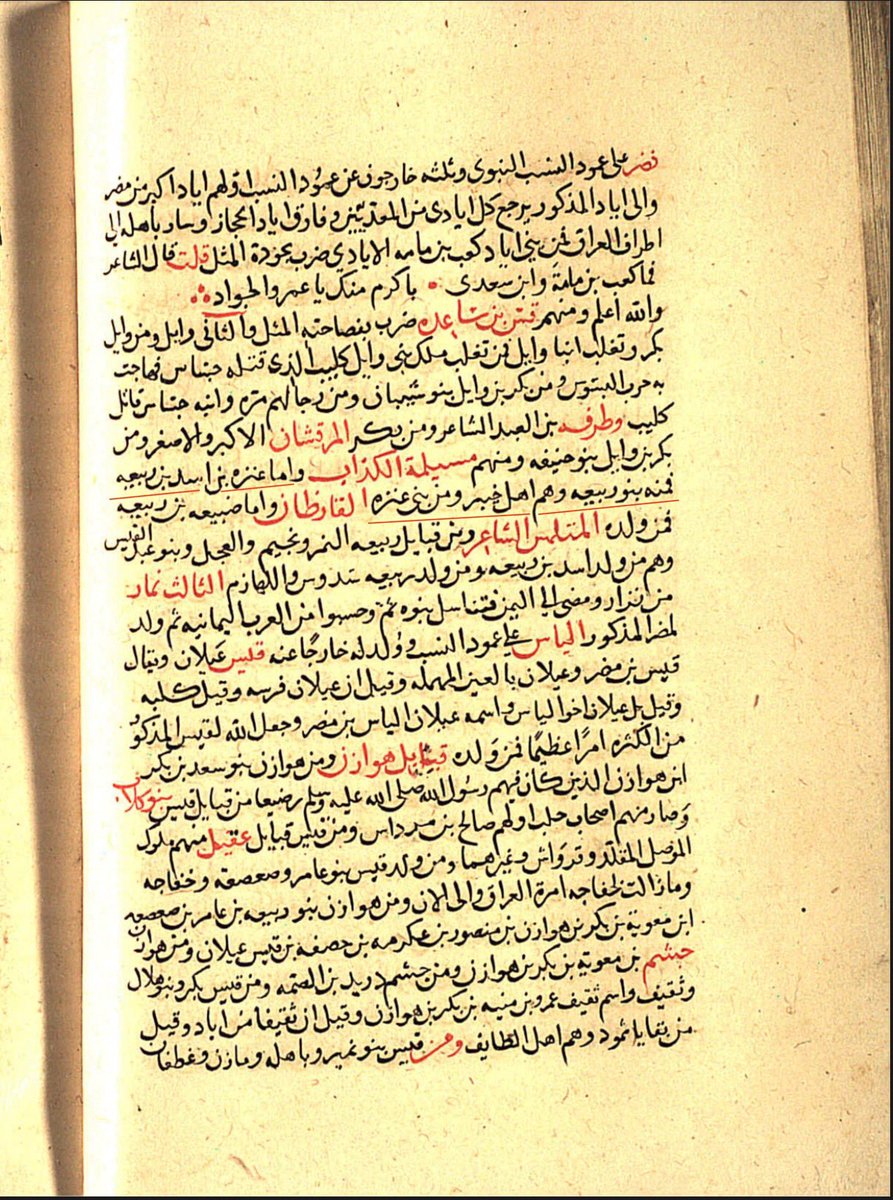 فضر على عمود النسب النبوى وثلثه خارجون عن عمود النسب اولهم اياد اكبر من مضر
والى اياد المذكور يرجع كل ايادى من المعديين وفارق اياد الحجاز وسار باهله الى
اطراف العراق فمن بنى اياد كعب بن مامه الايادي ضرب بجوده المثل قلت قال الشاعر
فما كعب بن مامة وابن سعدى باكرم منك يا عمر والجواد
والله اعلم ومنهم قس بن ساعده ضرب بفصاحته المثل والثانى وايل ومن وايل
بكر وتغلب ابنا وايل فمن تغلب ملك بنى وايل كليب الذى قتله جساس فهاجت
به حرب البسوس ومن بكر بن وايل بنو شيبان ومن رجالهم مره وابنه جساس قاتل
كليب وطرفه بن العبد الشاعر ومن بكر المرقشان الاكبر والاصغر ومن
بكر بن وايل بنو حنيفه ومنهم مسيلمة الكذاب واما عنزه بن اسد بن ربيعه
فمنه بنو ربيعه وهم اهل خيبر ومن بنى عنزه القارظان واما ضبيعه بن ربيعه
فمن ولده المتلمس الشاعر ومن قبايل ربيعه النمر ونجيم والعجل وبنو عبد القيس
وهم من ولد اسد بن ربيعه ومن ولد ربيعه سدوس واللهازم الثالث نمار
من نزار ومضى الى اليمن فتناسل بنوه ثم وحسبوا من العرب اليمانيه ثم ولد
لمضر المذكور الياس على عمود النسب وولد له خارجًا عنه قيس عيلان ويقال
قيس بن مضر وعيلان بالعين المهمله وقيل ان عيلان فرسه وقيل كلبه
وقيل بل عيلان اخو الياس واسمه عيلان الياس بن مضر وجعل الله لقيس المذكور
من الكثره امرًا عظيمًا فمن ولده قبايل هوازن ومن هوازن بنو سعد بن بكر
ابن هوازن الذين كان فيهم رسول الله صلى الله عليه وسلم رضيعا من قبايل قيس بنو كلاب
وصار منهم اصحاب حلب اولهم صالح بن مرداس ومن قيس قبايل عقيل منهم ملوك
الموصل المقلد وقرواش وغيرهما ومن ولد قيس بنو عامر وصعصعه وخفاجه
وما زالت لخفاجه امرة العراق والى الان ومن هوازن بنو ربيعه بن عامر بن صعصعه
ابن معوية بن بكر بن هوازن بن منصور بن عكرمه بن حصفه بن قيس عيلان ومن هوازن
جشم بن معوية بن بكر بن هوازن ومن جشم دريد بن الصمه ومن قيس بكر وبنو هلال
وثقيف واسم ثقيف عمرو بن منيه بن بكر بن هوازن وقيل ان ثقيفا من اياد وقيل
من بقايا ثمود وهم اهل الطايف ومن قيس بنو نمير وباهله ومازن وغطفان